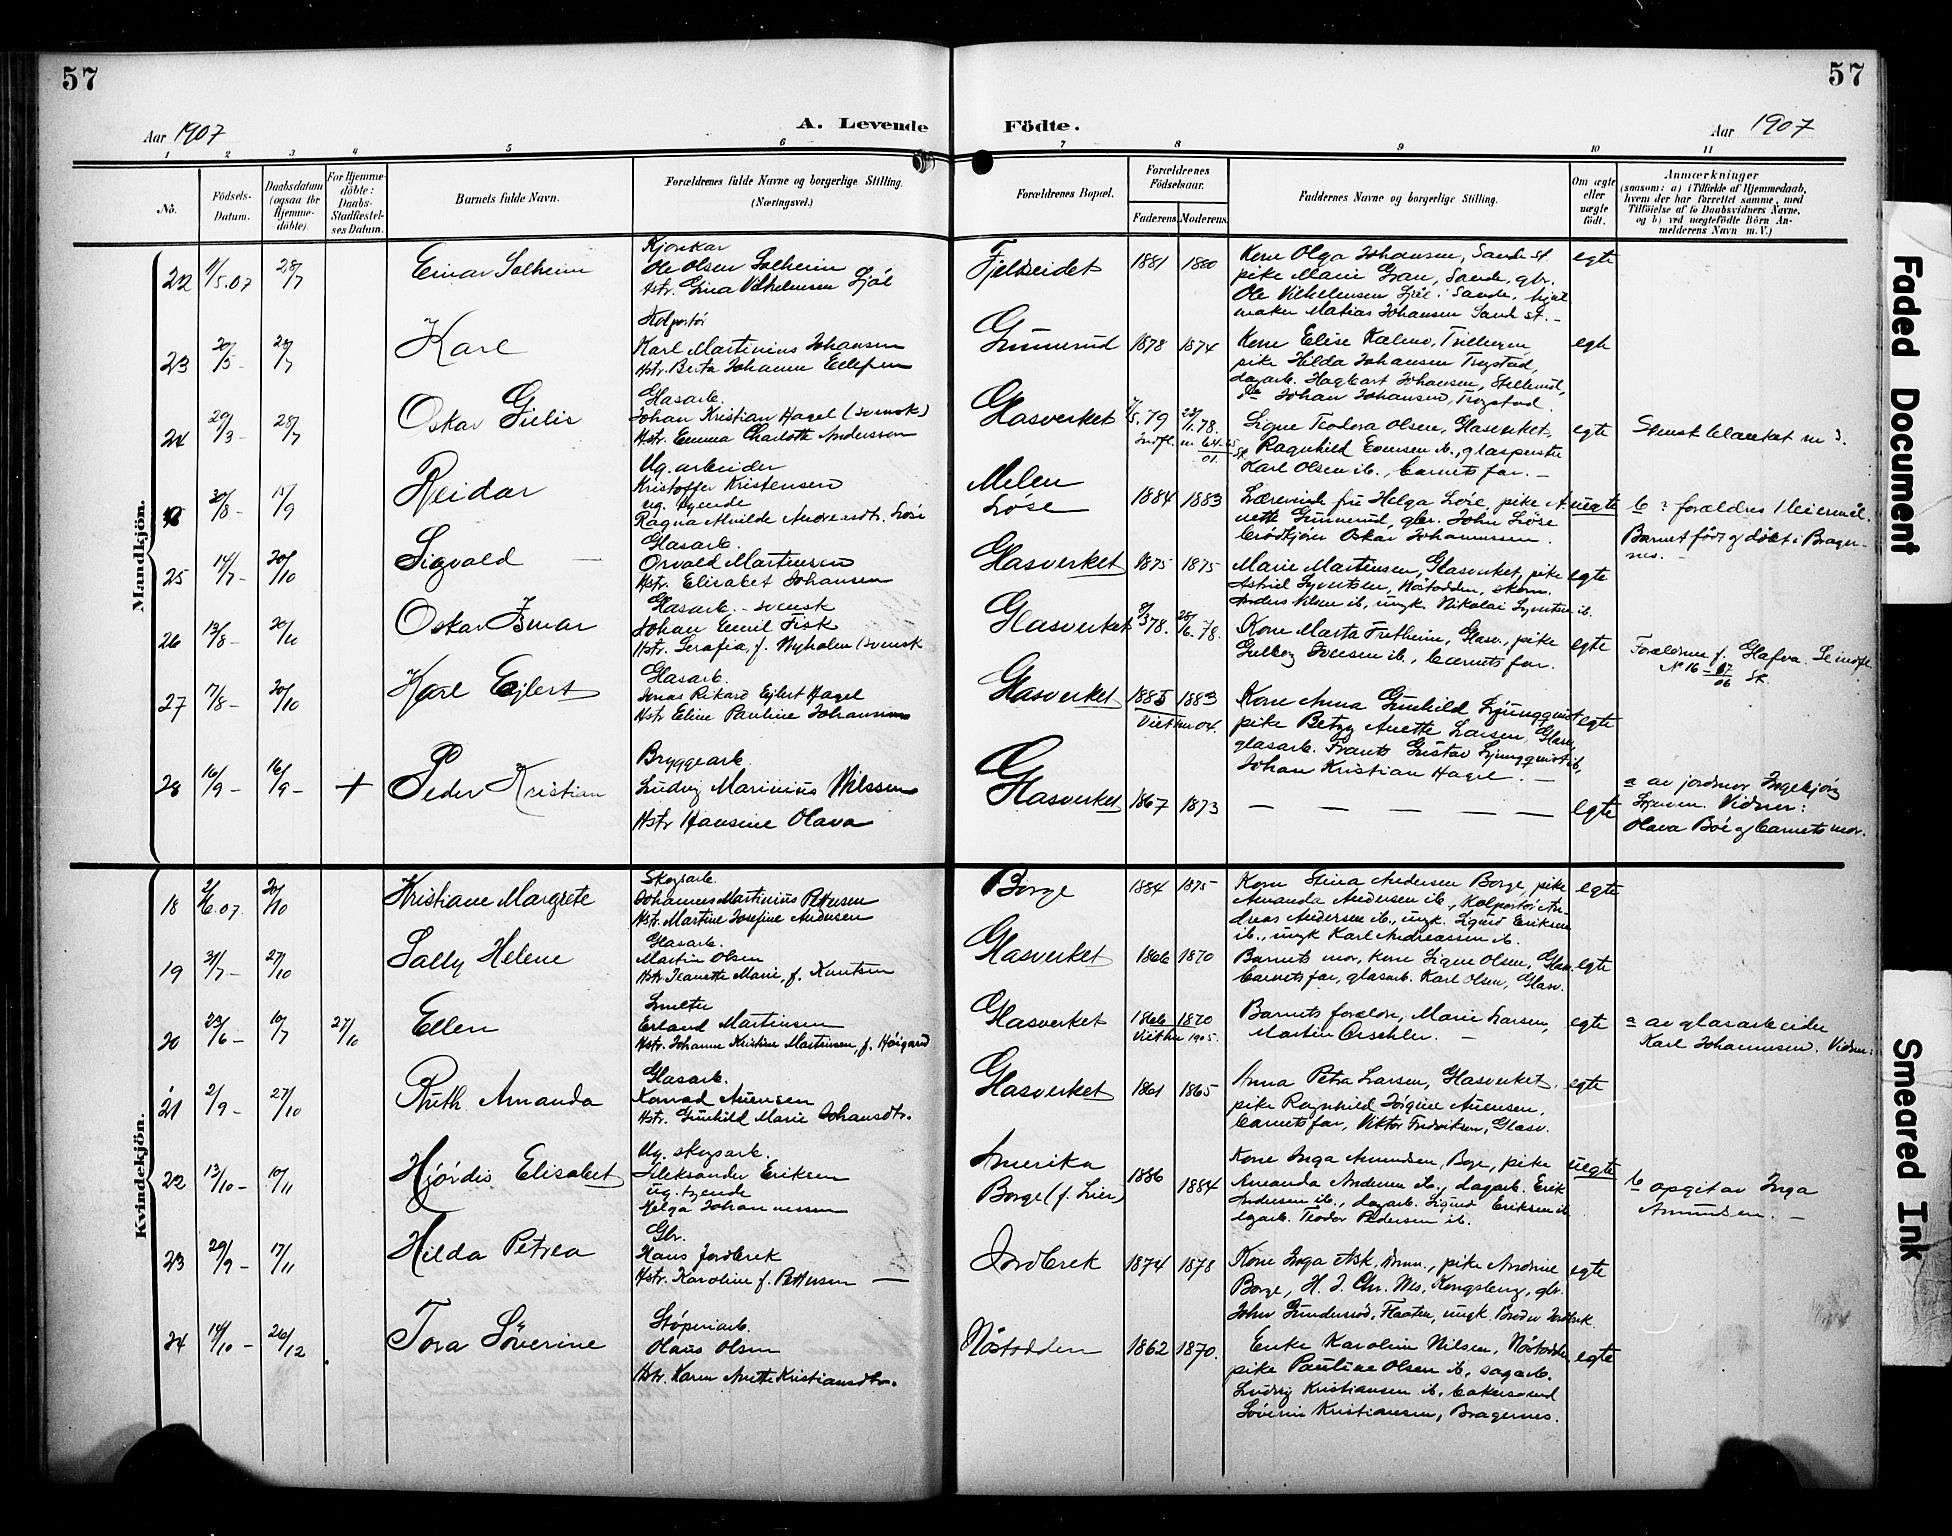 57
57
Aar 1907
A. Levende
Födte.
Aar 1907
1
2
3
4
5
6
7
8
9
10
11
No.
Födsels-
Datum.
Daabsdatum
(ogsaa for
Hjemme-
döbte).
For Hjemme-
döbte:
Daabs-
Stadfæstel-
ses Datum.
Barnets fulde Navn.
Forældrenes fulde Navne og borgerlige Stilling.
(Næringsvei.)
Forældrenes Bopæl.
Forældrenes
Födselsaar.
Faderens.
Moderens.
Faddernes Navne og borgerlige Stilling.
Om ægte
eller
uægte
födt.
Anmærkninger
(saasom: a) i Tilfælde af Hjemmedaab,
hvem der har forrettet samme, med
Tilföielse af to Daabsvidners Navne,
og b) ved uægtefödte Börn An-
melderens Navn m. V.)
Mandkjön.
22 1/5.07 28/7 Einar Solheim
Ole Olsen Solheim
Hstr. Gina Vilhelmsen
Fjeldseidet 1881 1880
Kone Olga Johansen, Sande st.
pike Marie Gran, Sande, gbr.
Ole Vilhelmsen Sande,
maker Matias Johansen Sand st. –
egte
23 20/5 – 28/7 Karl
Kolportör
Karl Martinius Johansen
Hstr. Berta Johanne Ellefsen
Gunnerud 1878 1874
Kone Elise
pike Hilda Johansen
dagarb. Hagbart Johansen,
do Johan Johansen,
24 29/3 – 28/7 Oskar
Glasarb.
Johan Kristian Hagel (svensk)
Hstr. Emma Charlotte Andersson
Glasverket
Signe Teodora Olsen, Glasverket,
Ragnhild Evensen ib., glaspuster
Karl Olsen ib., barnets far. –
egte
Svensk blanket nr 3.
30/8 – 15/9 Reidar
Ug. arbeider
Kristoffer Kristensen
ug. tjenende
Ragna Alvilde Andreasdtr.
Melen
1884 1883
Helga pike
Gunnerud, gbr. John
Oskar Johannessen.
uegte
b: forældres 1 leiermål.
Barnet födt og döbt i Brager-
nes.
25 14/7 – 20/10 Sigvald –
Glasarb.
Martinsen
Hstr. Elisabet Johansen
Glasverket 1875 1875
Marie Martinsen, Glasverket, pike
Astrid Syvertsen, Nöstodden, skom.
Anders Nilsen ib., ungk. Nikolai Syvertsen ib.
egte
26 13/8 – 20/10 Oskar
Glasarb. – svensk
Johan Emil Fisk
Hstr. Serafia, f. Nyholm (svensk
Glasverket
Kone Marta Fretheim, Glasv., pike
Ivesen ib., barnets far.
egte
27 17/8 – 20/10 Karl Ejlert
Glasarb.
Jonas Rikard Ejlert Hagel
Hstr Eline Pauline Johansen
Glasverket 1885 1883
Kone Anna Gunhild Ljungqvist
pike Betzy Anette Larsen, Glasv.
glasarb. Frants Gustav Ljungqvist ib,
Johan Kristian Hagel. –
egte
28 16/9 – 16/9 – + Peder Kristian
Bryggearb.
Ludvig Marinius Nilssen
Hstr Hansine Olava
Glasverket 1867 1873
– – – – –
egte
a av jordmor Ingebjörg
Vidner:
Olava Böe og barnets mor.
Kvindekjön.
18 2/6.07 20/10 Kristiane Margrete
Skogsarb.
Johannes Martinius Pettersen
Hstr. Martine Josefine Andersen
Borge 1884 1875
Kone Stina Andersen Borge, pike
Amanda Andersen ib., Kolportör An-
dreas Andersen ib., ungk. Sigurd Eriksen
ib., ungk Karl Andreassen ib.
egte
19 31/7 – 27/10 Sally Helene
Glasarb.
Martin Olsen
Hstr Jeanette Marie, f. Knutsen
Glasverket 1866 1870
Barnets mor, kone Signe Olsen, Glasv.
barnets far, glasarb. Karl Olsen, Glasv.
egte
20 23/6 – 10/7 27/10 Ellen
Smelter
Erland Martinsen
Hstr. Johanne Kristine Martinsen, f. Höigaard
Glasverket 1866 1870
Viet her 1905.
Barnets forældre, Marie Larsen,
Martin Oeschler. –
egte
a av glasarbeider
Karl Johannesen. Vidner:
21 2/9 – 27/10 Ruth Amanda
Glasarb.
Konrad Auensen
Hstr. Gunhild Marie Johansdtr.
Glasverket 1861 1865
Anna Petra Larsen, Glasverket.
pike Ragnhild Jörgine Auensen,
barnets far, Viktor Fredriksen, Glasv.
egte
22 13/10 – 10/11 Hjördis Elisabet
Ug. skogsarb.
Aleksander Eriksen
ug. tjenende
Helga Johannessen
Amerika
Borge (f. Lier)
1886 1884
Kone Inga Amundsen, Borge, pike
Amanda Andersen ib., dagarb. Erik
Andersen ib., dagarb. Sigurd Eriksen ib
dgarb. Teodor Pedersen ib.
uegte
b opgit av Inga
Amundsen. –
23 29/9 – 17/11 Hilda Petrea
Gbr.
Hans Jordbrek
Hstr. Karoline f. Pettersen –
Jordbrek 1874 1878
Kone Inga Ask, pike Andrine
Borge, H. J. Chr. Nes, Kongsberg, gbr.
John Gunderröd, Flaaten, ungk. Jordbrek
egte
24 14/10 – 26/12 Tora Söverine
Stöperiarb.
Olaus Olsen
Hstr. Karen Anette Kristiansdtr.
Nöstodden 1862 1870.
Enke Karoline Nilsen, Nöstodden
pike Pauline Olsen ib, sagarb.
Ludvig Kristiansen ib, bakersvend
Söverin Kristiansen, Bragernes.
egte
Faded Document
Smeared Ink